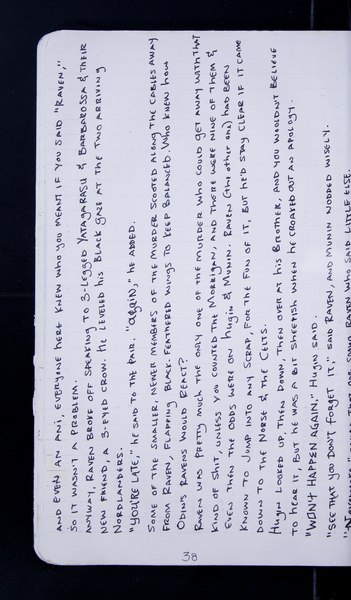 AND EVEN AN ANI, EVERYONE HERE KNEW WHO YOU MEANT IF YOU SAID "RAVEN,"
SO IT WASN'T A PROBLEM.
ANYWAY, RAVEN BROKE OFF SPEAKING TO 3-LEGGED YATAGARASU & BARBAROSSA & THEIR
NEW FRIEND, A 3-EYED CROW. HE LEVELED HIS BLACK GAZE AT THE TWO ARRIVING
NORDLANDERS.
"YOU'RE LATE," HE SAID TO THE PAIR. "AGAIN," HE ADDED.
SOME OF THE SMALLER, NEWER MEMBERS OF THE MURDER SCOOTED ALONG THE CABLES AWAY
FROM RAVEN, FLAPPING BLACK-FEATHERED WINGS TO KEEP BALANCED. WHO KNEW HOW
ODIN'S RAVENS WOULD REACT?
RAVEN WAS PRETTY MUCH THE ONLY ONE OF THE MURDER WHO COULD GET AWAY WITH THAT
KIND OF SHIT, UNLESS YOU COUNTED THE MORRIGAN, AND THERE WERE NINE OF THEM &
EVEN THEN THE ODDS WERE ON HUGIN & MUNIN. RAVEN (THE OTHER ONE) HAD BEEN
KNOWN TO JUMP INTO ANY SCRAP, FOR THE FUN OF IT, BUT HE'D STAY CLEAR IF IT CAME
DOWN TO THE NORSE & THE CELTS.
HUGIN LOOKED UP, THEN DOWN, THEN OVER AT HIS BROTHER, AND YOU WOULDN'T BELIEVE
TO HEAR IT, BUT HE WAS A BIT SHEEPISH WHEN HE CROAKED OUT AN APOLOGY.
"WON'T HAPPEN AGAIN," HUGIN SAID.
"SEE THAT YOU DON'T FORGET IT," SAID RAVEN, AND MUNIN NODDED WISELY.
RAVEN WHO SAID LITTLE ELSE
38